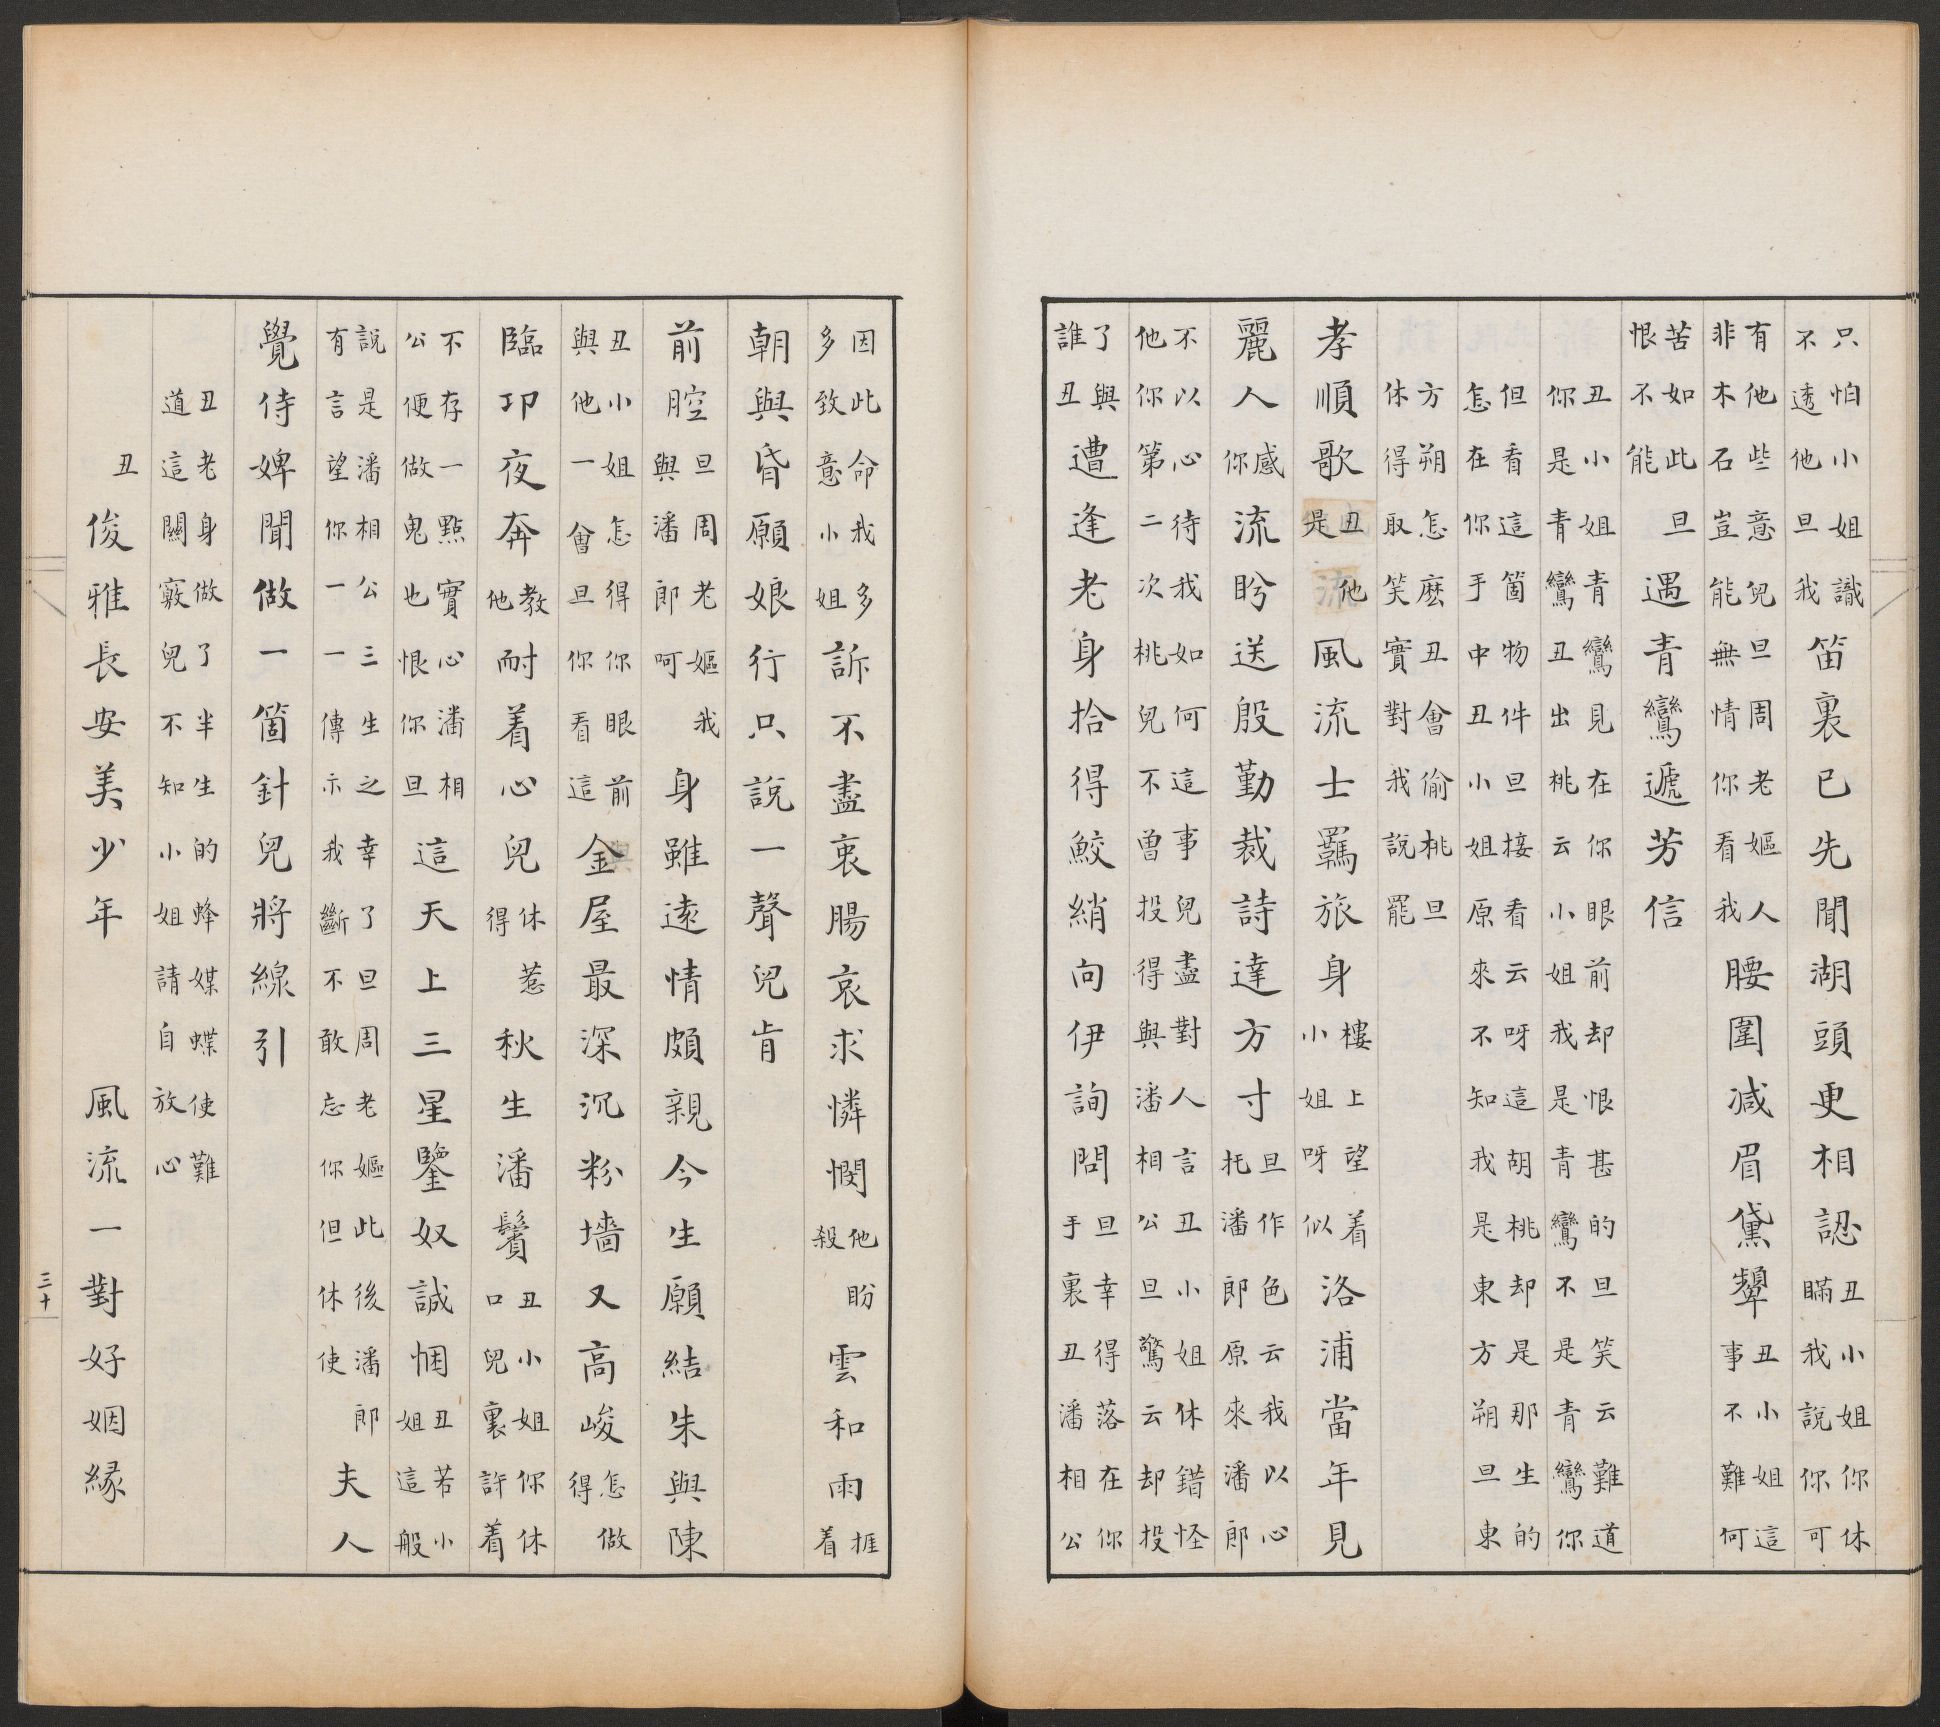 只怕小姐識不透他旦我笛裏已先聞湖頭更相認丑小姐你休瞞我說你可
有他些意兒旦周老嫗人非木石豈能無情你看我腰圍減眉黛顰丑小姐這事不難何
苦如此旦恨不能遇青鸞遞芳信
丑小姐青鸞見在你眼前却恨甚的旦笑云難道你是青鸞丑出桃云小姐我是青鸞不是青鸞你
但看這箇物件旦接看云呀這胡桃却是那生的怎在你手中丑小姐原來不知我是東方朔旦東
方朔怎麽丑會偷桃旦休得取笑實對我說罷
孝順歌丑他是風流士羈旅身樓上望着小姐呀似洛浦當年見
麗人感你流盻送殷勤裁詩達方寸旦作色云我以心托潘郎原來潘郎
不以心待我如何這事兒盡對人言丑小姐休錯怪他你第二次桃兒不曾投得與潘相公旦驚云却投
了與誰丑遭逢老身拾得鮫綃向伊詢問旦幸得落在你手裏丑潘相公
因此命我多多致意小姐訴不盡衷腸哀求憐憫他盼殺雲和雨捱着
朝與昏願娘行只說一聲兒肯
前腔旦周老嫗我與潘郎呵身雖遠情頗親今生願結朱與陳
丑小姐怎得你眼前與他一會旦你看這金屋最深沉粉墻又高峻怎做得
臨卭夜奔教他耐着心兒休惹得秋生潘鬢丑小姐你休口兒裏許着
不存一點實心潘相公便做鬼也恨你旦這天上三星鑒奴誠悃丑若小姐這般
說是潘相公三生之幸了旦周老嫗此後潘郎有言望你一一傳示我斷不敢忘你但休使夫人
覺侍婢聞做一箇針兒將線引
丑老身做了半生的蜂媒蝶使難道這關竅兒不知小姐請自放心
丑 俊雅長安美少年 風流一對好姻緣
三十